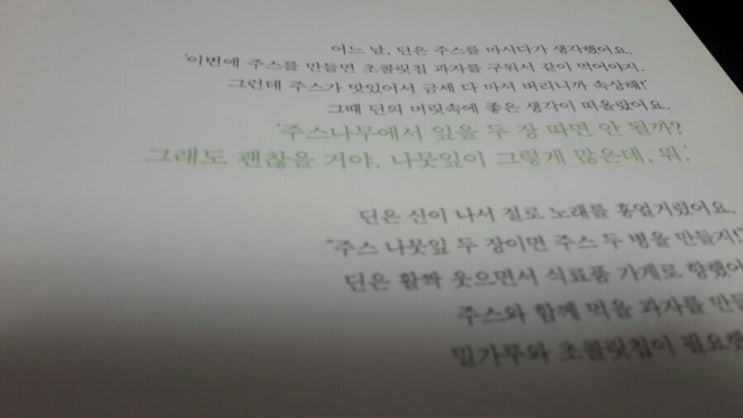 어느 날, 딘은 주스를 마시다가 생각했어요.
'이번에 주스를 만들면 초콜릿칩 과자를 구워서 같이 먹어야지.
그런데 주스가 맛있어서 금세 다 마셔 버리니까 속상해!'
그때 딘의 머릿속에 좋은 생각이 떠올랐어요.
'주스나무에서 잎을 두 장 따면 안 될까?
그래도 괜찮을 거야, 나뭇잎이 그렇게 많은데, 뭐.'
딘은 신이 나서 절로 노래를 흥얼거렸어요.
"주스 나뭇잎 두 장이면 주스 두 병을 만들지!"
딘은 활짝 웃으면서 식료품 가게로 향했어
주스와 함께 먹을 과자를 만들
밀가루와 초콜릿칩이 필요했